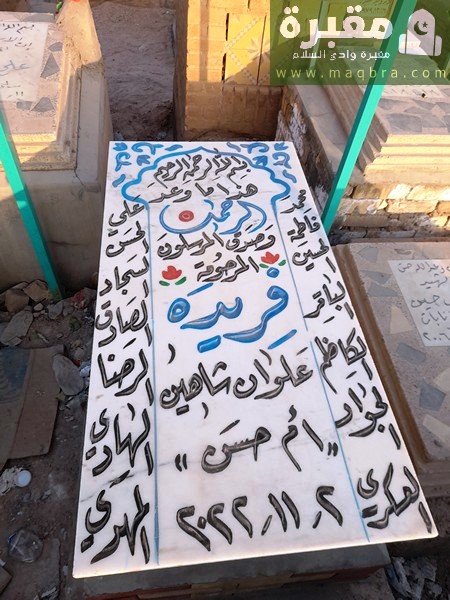 مقبرة
مقبرة وادي السلام
www.maqbra.com
بسم الله الرحمن الرحيم
هذا ما وعد
الرحمن
وصدق المرسلون
المرحومة
فريده
علوان شاهين
«ام حسن»
٢٠٢٢.١١.٢
محمد
فاطمة
الحسين
الباقر
الكاظم
الجواد
العسكري
علي
الحسن
السجاد
الصادق
الرضا
الهادي
المهدي